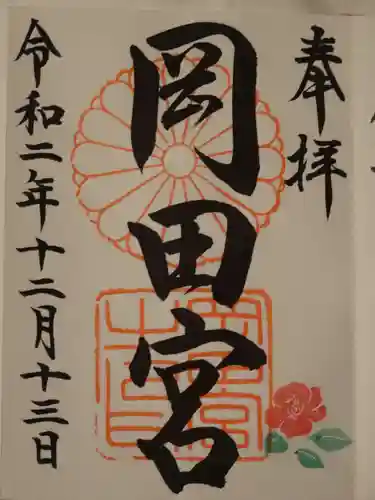 奉拝
岡田宮
令和二年十二月十三日